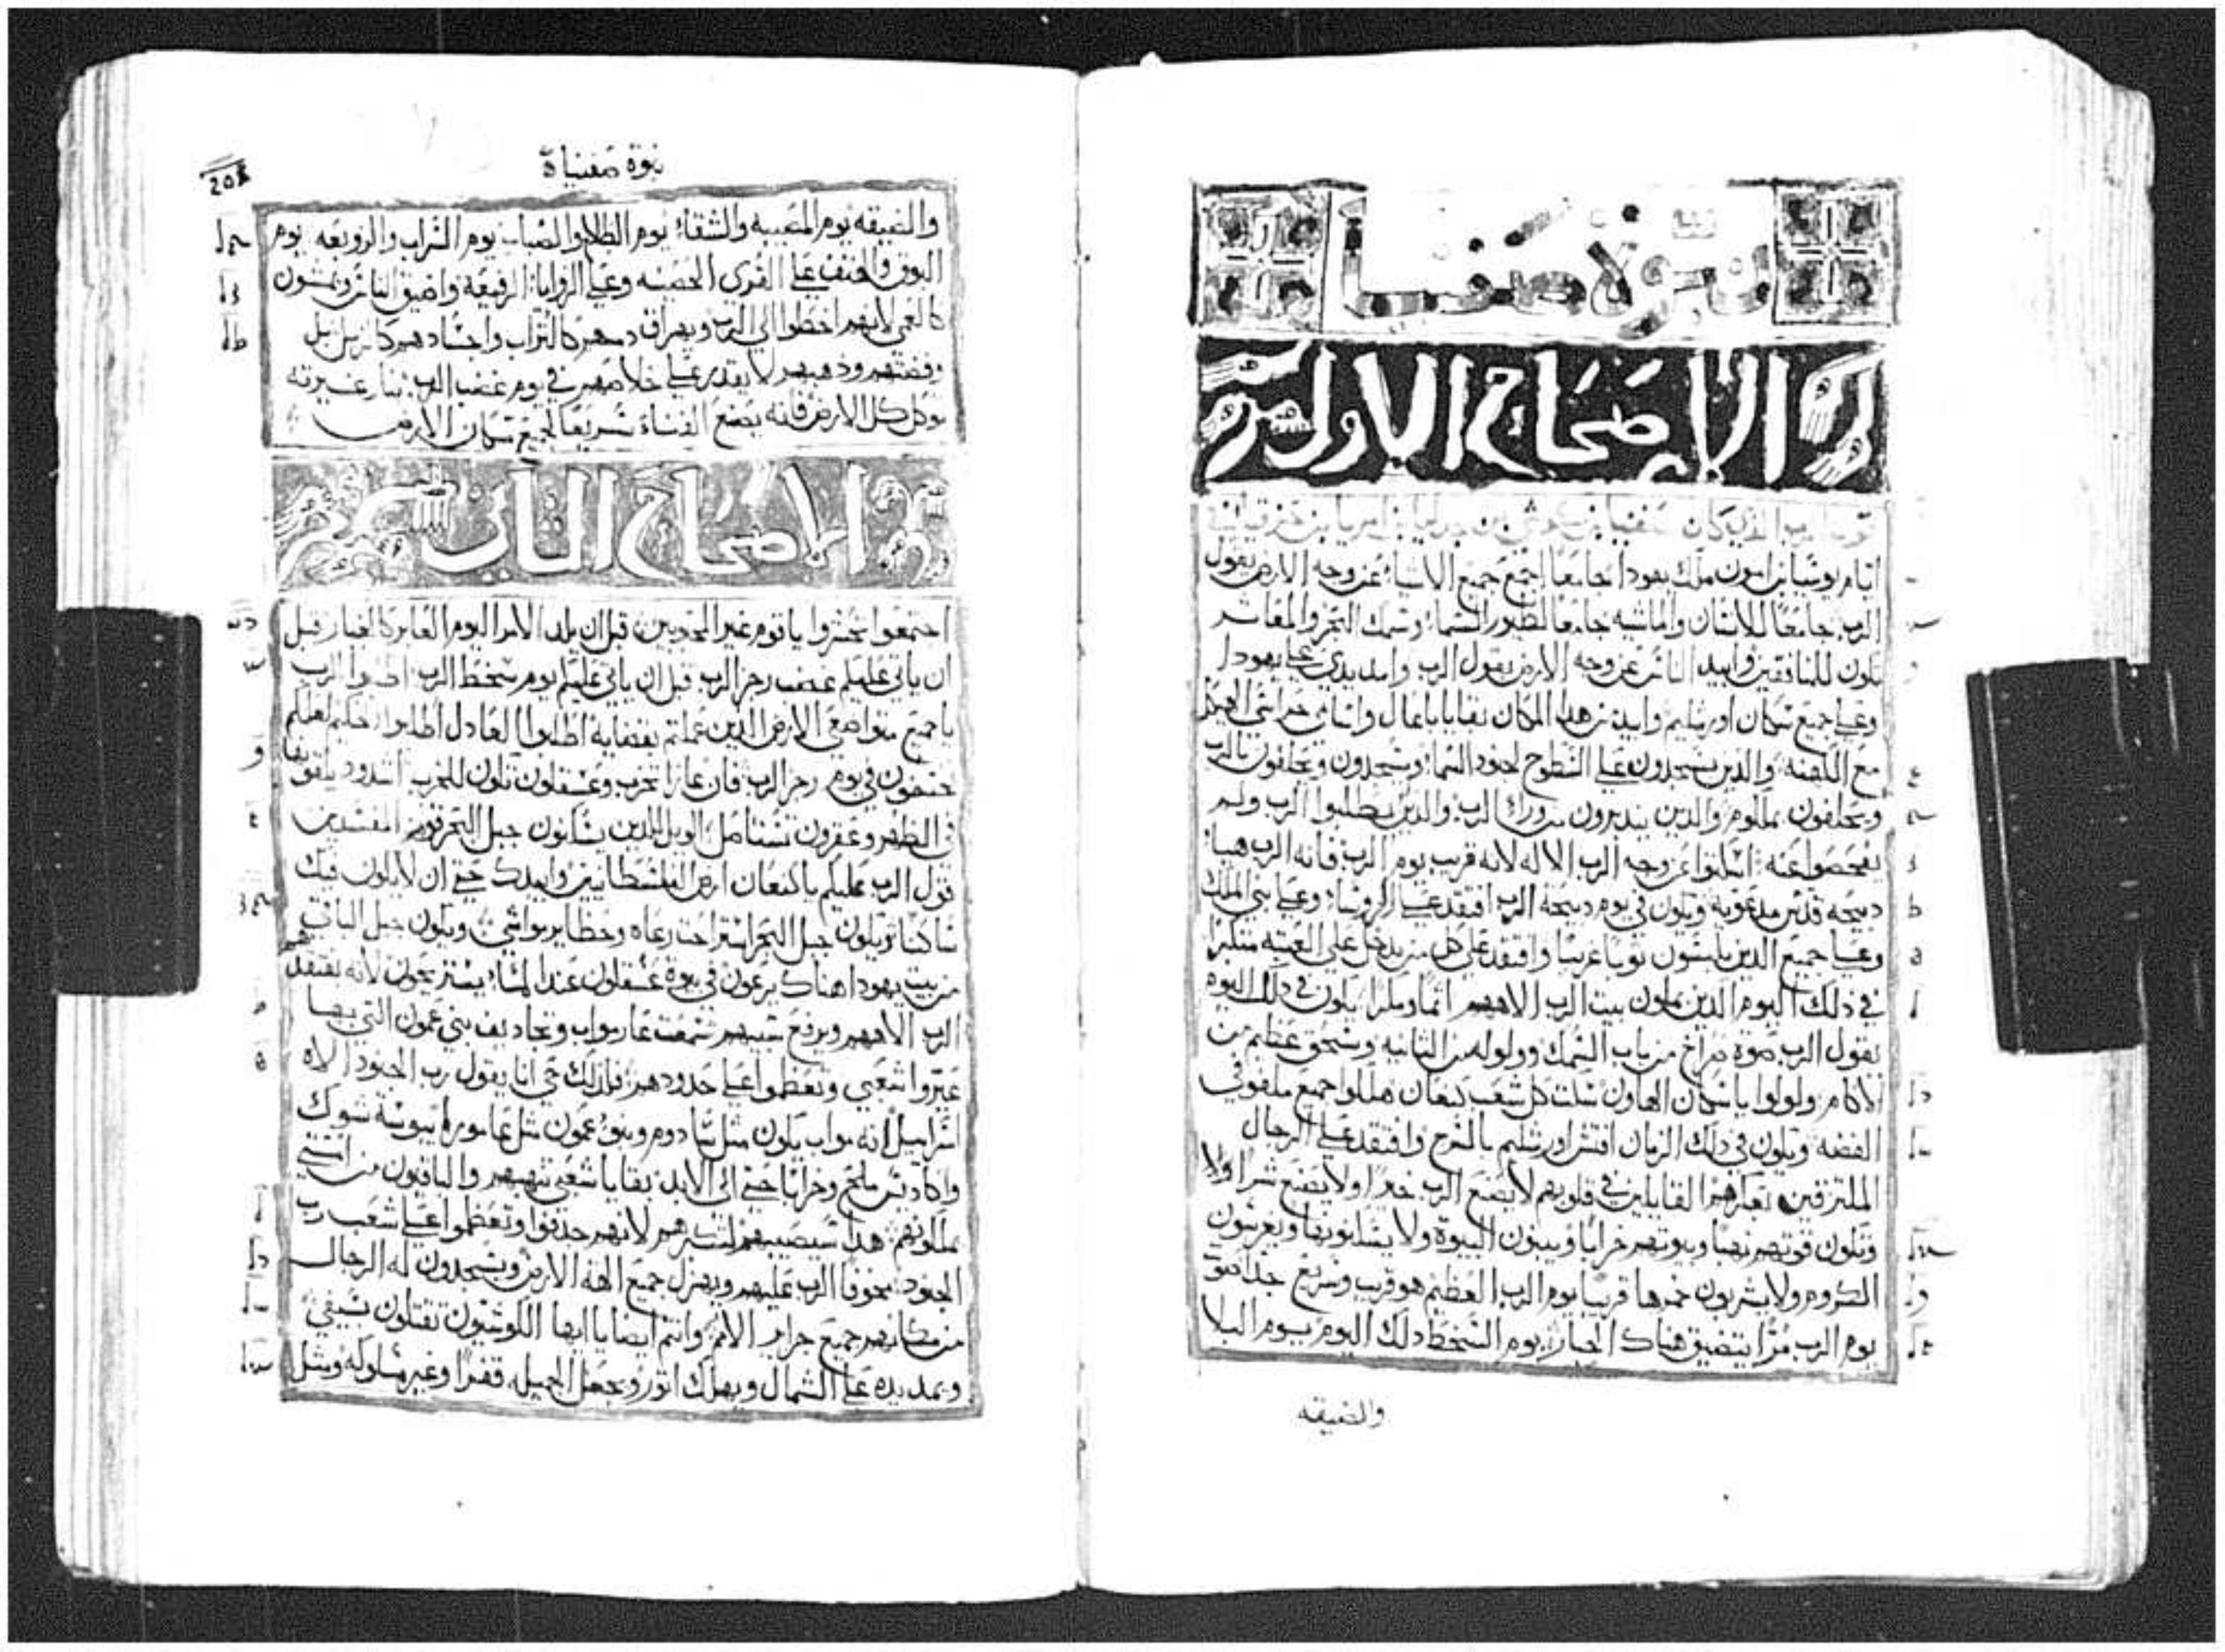 نبوة صفنيا
الإصحاح الاول
الذي كان صفنيا بن بن بن امريا بن حزقيا
ايام يوشيا بن امون ملك يهودا جامعا اجمع جميع الاشيا عن وجه الارض يقول
الرب جامعا للانسان والماشيه جامعا لطيور السما وسمك البحر والمعاثر
تكون للمنافقين وابيد الناس عن وجه الارض يقول الرب وامد يدي علي يهودا
وعلي جميع سكان اورشليم وابيد من هدا المكان بقايا باعال واسامي
مع الكهنه والدين يسجدون علي السطوح لجنود السما ويسجدون ويحلفون بالرب
ويحلفون بملكوم والدين يتدبرون من وراء الرب والدين يطلبوا الرب ولم
يفحصوا عنه اسكتوا عن وجه الرب الاله لانه قريب يوم الرب فانه الرب هيا
دبيحه قدس مدعويه ويكون في يوم دبيحة الرب افتقد علي الروسا وعلي بني الملك
وعلي جميع الدين يلبسون توبا غريبا وافتقد علي كل من يدخل علي العتبه متكبرا
في دلك اليوم الدين يملون بيت الرب الاههم اتما ومكرا يكون في دلك اليوم
يقول الرب صوة صراخ من باب السمك وولوله من التانيه وسحق عظيم من
الاكام ولولوا يا سكان الهاون سكت كل شعب كنعان هللوا جميع ملفوفي
الفضه ويكون في دلك الزمان افتش اورشليم بالسرج وافتقد علي الرجال
الملتزقين القايلين في قلوبهم لا يصنع الرب خيرا ولا يصنع شرا
وتكون قوتهم نهبا وبيوتهم خرابا ويبنون البيوة ولا يسكنونها ويغرسون
الكروم ولا يشربون خمرها قريبا يوم الرب العظيم هو قريب وسريع جدا صوة
يوم الرب مرا يتضيق هناك الجبار يوم السخط دلك اليوم يوم البلا
والضيقه
نبوة صفنياة
20
والضيقه يوم المصيبه والشقا يوم الظلام والضباب يوم التراب والزوبعه يوم
البوق والهتف علي القرى الحصينه وعلي الزوايا الرفيعه واضيق الناس ويمشون
كالعمي لانهم اخطوا الي الرب ويهراق دمهم كالتراب واجسادهم كالزبل بل
وفضتهم ودهبهم لا يقدر علي خلاصهم في يوم غضب الرب بنار غيرته
توكل كل الارض فانه يصنع الفناة سريعا لجميع سكان الارض
الاصحاح التاني
اجتمعوا احتشروا يا قوم غير المحبوبين قبل ان يلد الامر اليوم العابر كالغبار قبل
ان ياتي عليكم غضب رجز الرب قبل ان ياتي عليكم يوم سخط الرب اطلبوا الرب
يا جميع متواضعي الارض الدين عملتم بقضايه اطلبوا العادل اطلبوا لعلكم
تختفون في يوم رجز الرب فان غازا تخرب وعسقلون تكون للخرب اشدود
في الظهر وعقرون تستاصل الويل للدين يسكنون حبل البحر قوم المفسدين
قول الرب عليكم يا كنعان ارض الفلسطانيين وابيدك حتي ان لا يكون فيك
ساكنا ويكون حبل البحر رعاه وحظاير مواشي ويكون حبل الباقي
من بيت يهودا هناك يرعون في بيوة عسقلون عند المسا يستريحون لانه يفتقدهم
الرب الاههم ويرفع سبيهم سمعت عار مواب وتجاديف بني عمون التي بها
عيروا شعبي وتعظموا علي حدودهم فلدلك حي انا يقول رب الجنود الاه
اسراييل انه مواب يكون متل سادوم وبنو عمون متل عامورا يبوسة شوك
واكاديس ملح وخرابا حتي الي الابد بقايا شعبي تنهبهم والباقيون من امتي
يملكونهم هدا سيصيبهم لانهم جدفوا وتعظموا علي شعب رب
الجنود مخوفا الرب عليهم ويهزل جميع الهة الارض ويسجدون له الرجال
من مكانهم جميع جزاير الامم وانتم ايضا يا ايها الكوشيون تقتلون بسيفي
ويمد يده علي الشمال ويهلك اتور ويجعل الجميله قفرا وغير مسلوكه ومتل